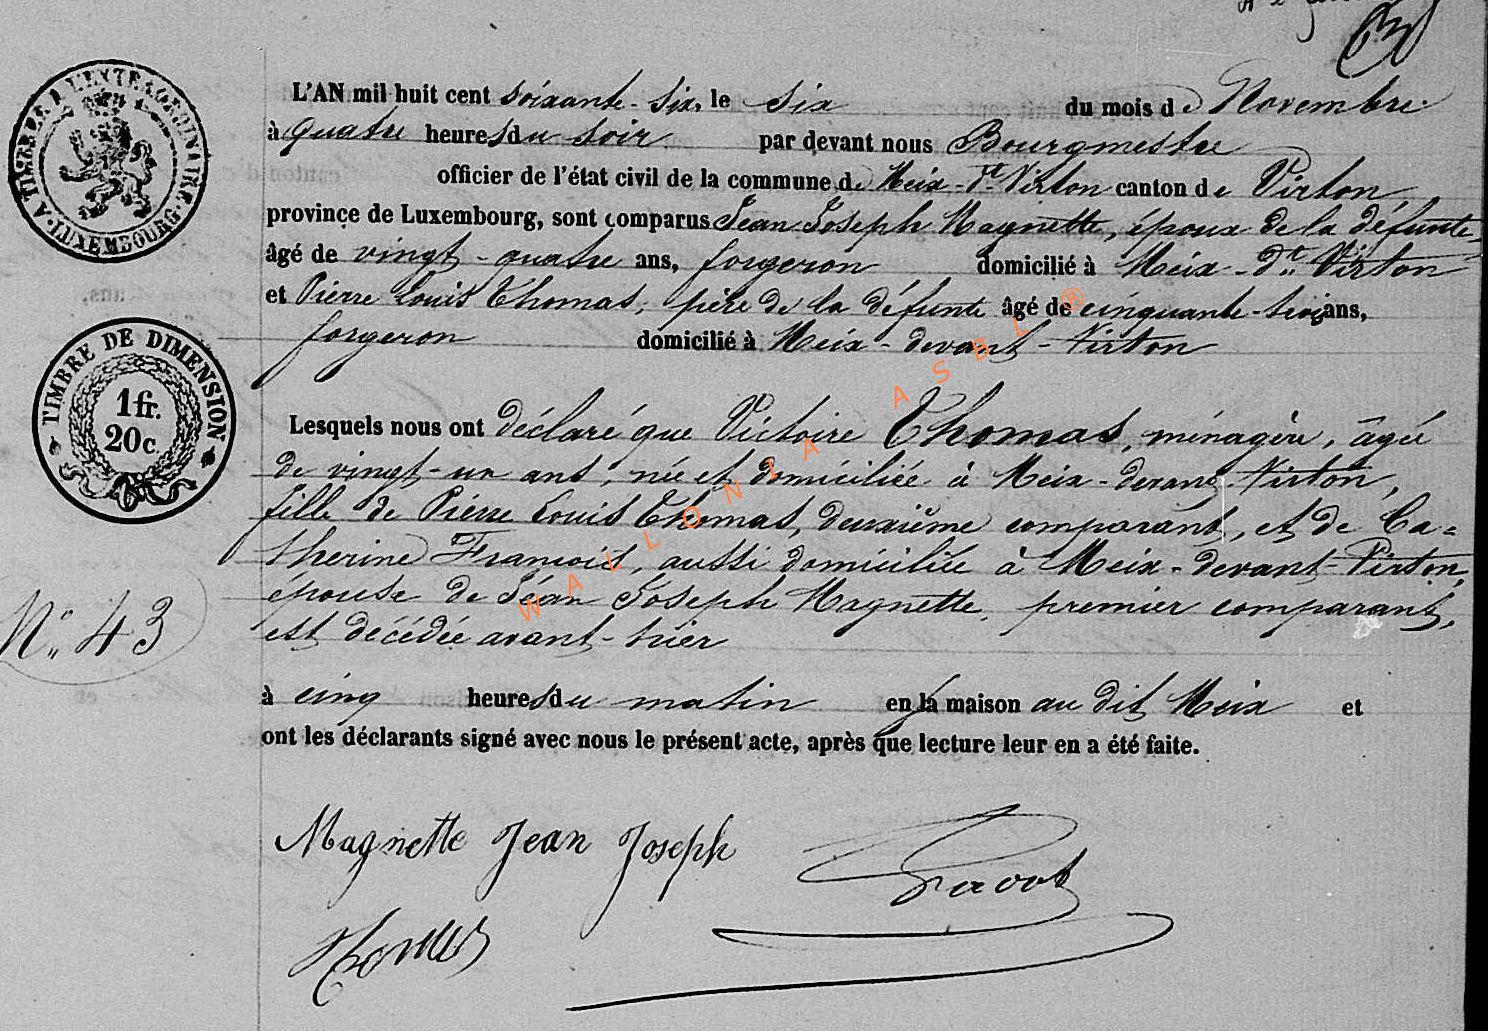 A TIMBRER A L'EXTRAORDINAIRE
LUXEMBOURG
L'AN mil huit cent soixante-six, le six du mois de Novembre
à quatre heures du soir par devant nous Bourgmestre
officier de l'état civil de la commune de Meix-dt-Virton canton de Virton,
province de Luxembourg, sont comparus Jean Joseph Magnette, époux de la défunte,
âgé de vingt-quatre ans, forgeron domicilié à Meix-dt-Virton
et Pierre Louis Thomas, père de la défunte âgé de cinquante-trois ans,
forgeron domicilié à Meix-devant-Virton
TIMBRE DE DIMENSION
1 fr.
20 c.
Lesquels nous ont déclaré que Victoire Thomas, ménagère, âgée
de vingt-un ans, née et domiciliée à Meix-devant-Virton,
fille de Pierre Louis Thomas, deuxième comparant, et de Ca=
therine François, aussi domiciliée à Meix-devant-Virton,
épouse de Jean Joseph Magnette, premier comparant,
est décédée avant-hier
N° 43
à cinq heures du matin en la maison au dit Meix et
ont les déclarants signé avec nous le présent acte, après que lecture leur en a été faite.
Magnette Jean Joseph
Thomas
WALLONIA ASBL ®